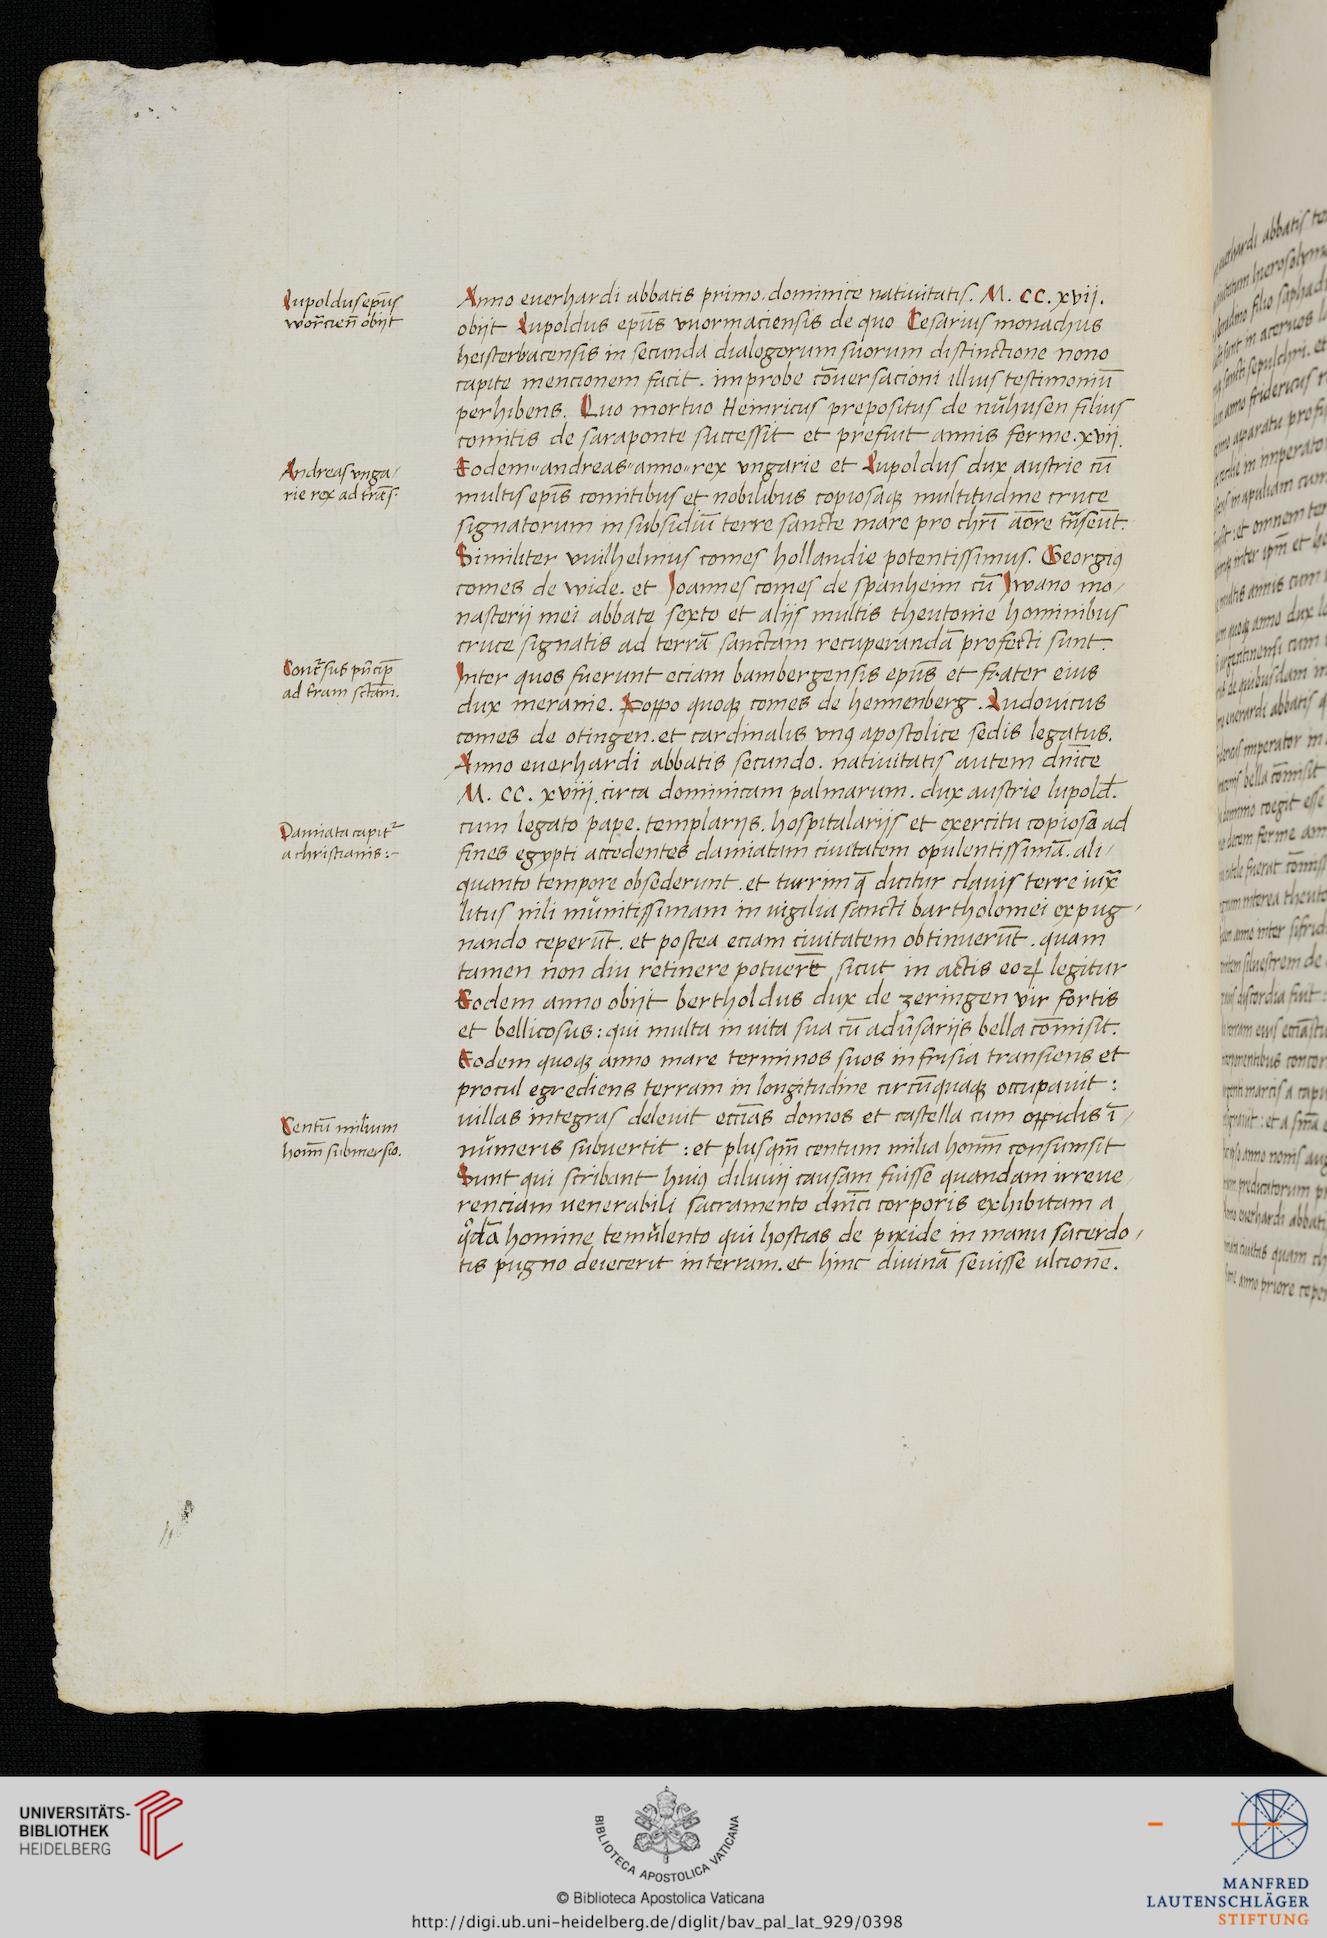 Lupoldus ep̄us
wor̄cieñ obijt
Anno everhardi abbatis primo. dominice nativitatis. M. CC. xvij.
obijt Lupoldus ep̄us vuormaciensis de quo Cesarius monachus
heisterbacensis in secunda dialogorum suorum distinctione nono
capite mencionem facit. improbe cōversacioni illius testimoniū
perhibens. Quo mortuo Heinricus prepositus de nŭhusen filius
comitis de saraponte successit et prefuit annis ferme. xvij.
Andreas vnga/
rie rex ad trā s.
Eodem" andreas" anno" rex vngarie et Lupoldus dux austrie cū
multis ep̄is comitibus et nobilibus copiosaqꝫ multitudine cruce
signatorum in subsidiū terre sancte mare pro chrī aōre trn̄seūt.
Similiter vuilhelmus comes hollandie potentissimus. Georgiꝯ
comes de wide. et Ioannes comes de spanheim cū Iwano mo/
nasterij mei abbate sexto et alijs multis theutonie hominibus
cruce signatis ad terrā sanctam recuperandā profecti sunt.
Conc̄sus prīcip̄
ad tr̄am sctām.
Inter quos fuerunt eciam bambergensis ep̄us et frater eius
dux meranie. Poppo quoqꝫ comes de hennenberg. Ludovicus
comes de otingen. et cardinalis vnꝯ apostolice sedis legatus.
Anno everhardi abbatis secundo. nativitatis autem dn̄ice
M. CC. xviij. circa dominicam palmarum. dux austrie lupold̄.
Damiata capit᷑
a christianis:~
cum legato pape. templarijs. hospitalarijs et exercitu copioso ad
fines egypti accedentes damiatam civitatem opulentissimā. ali/
quanto tempore obsederunt. et turrim q̄ dicitur clavis terre iuxͣ
litus nili mŭnitissimam in vigilia sancti bartholomei expug/
nando ceperūt. et postea eciam civitatem obtinuerūt. quam
tamen non diu retinere potuerūt, sicut in actis eoꝝ legitur
Eodem anno obijt bertholdus dux de zeringen vir fortis
et bellicosus: qui multa in vita sua cū adūsarijs bella cōmisit.
Eodem quoqꝫ anno mare terminos suos in frisia transiens et
procul egrediens terram in longitudine circūquaqꝫ occupavit:
Centū milium
hom̄ submersio.
villas integras delevit ecc̄ias domos et castella cum oppidis ī/
nŭmeris subvertit: et plusqm̄ centum milia hom̄ consumsit
Sunt qui scribant huiꝯ diluvij causam fuisse quandam irreve/
renciam venerabili sacramento dn̄ici corporis exhibitam a
qͦdā homine temŭlento qui hostias de pixide in manu sacerdo/
tis pugno deiecerit in terram. et hinc divinā sevisse ulcionē.
UNIVERSITÄTS-
BIBLIOTHEK
HEIDELBERG
BIBLIOTECA APOSTOLICA VATICANA
© Biblioteca Apostolica Vaticana
http://digi.ub.uni-heidelberg.de/diglit/bav_pal_lat_929/0398
MANFRED
LAUTENSCHLÄGER
STIFTUNG